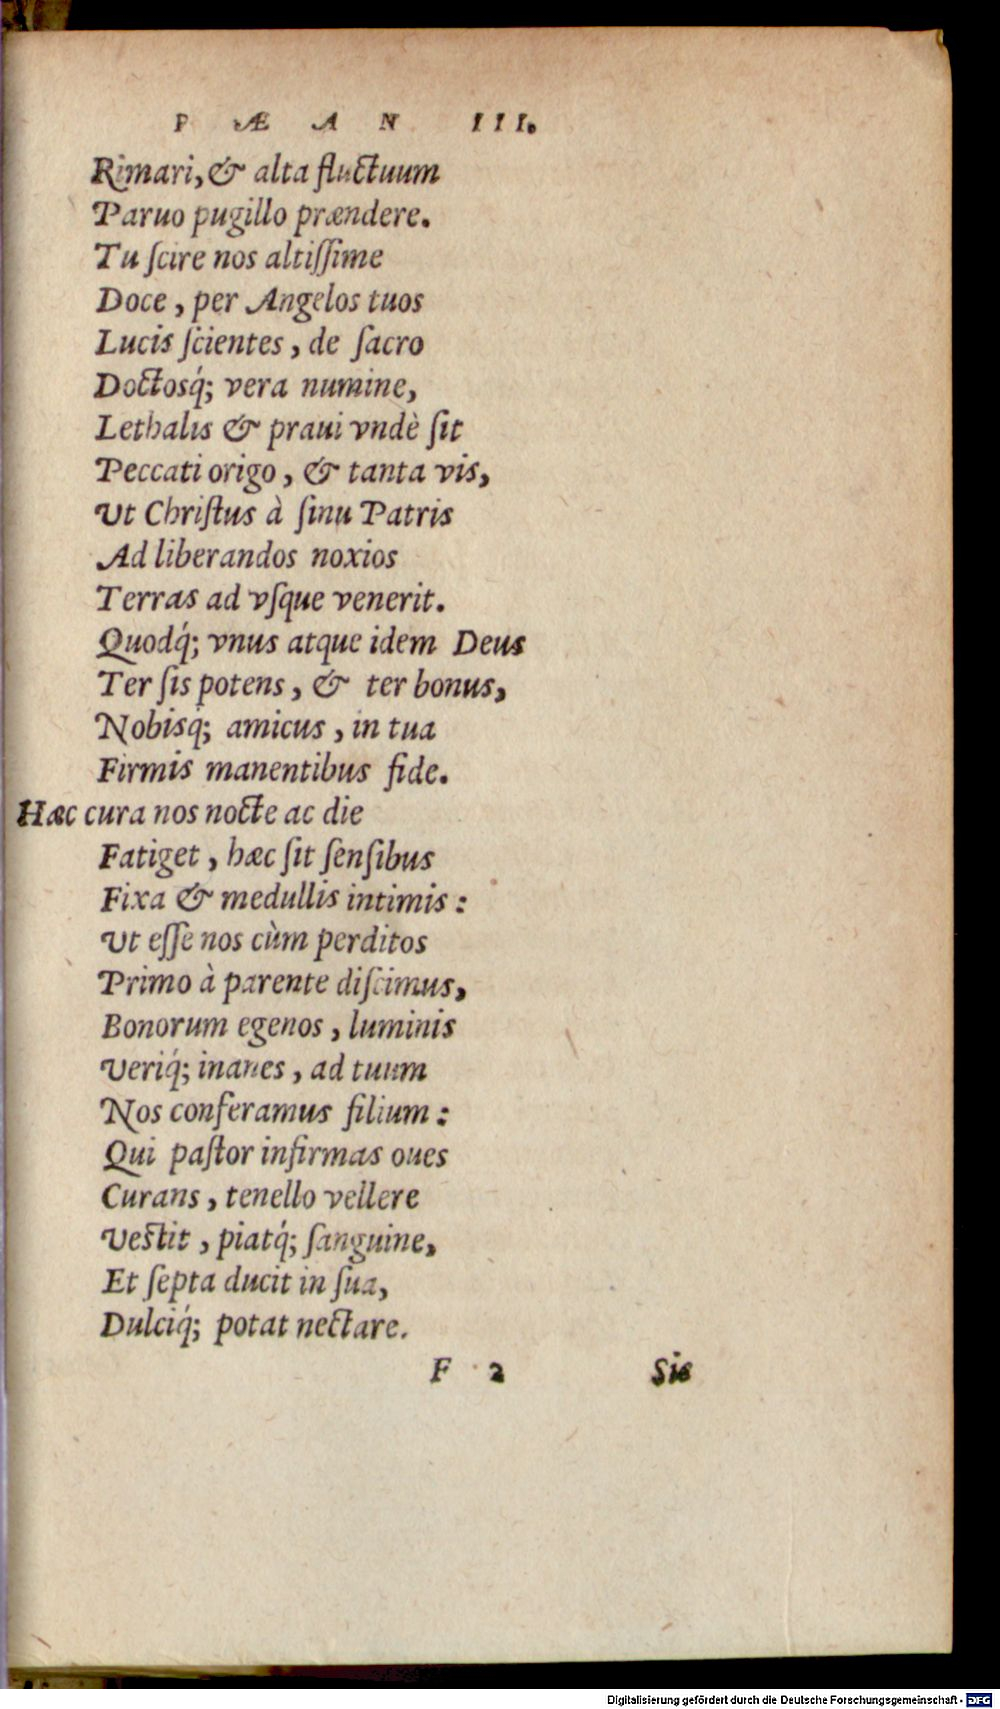 P Æ A N III.
Rimari, & alta fluctuum
Paruo pugillo prændere.
Tu ſcire nos altiſſime
Doce, per Angelos tuos
Lucis ſcientes, de ſacro
Doctosq́; vera numine,
Lethalis & praui vndè ſit
Peccati origo, & tanta vis,
Ut Chriſtus à ſinu Patris
Ad liberandos noxios
Terras ad vſque venerit.
Quodq́; vnus atque idem Deus
Ter ſis potens, & ter bonus,
Nobisq́; amicus, in tua
Firmis manentibus fide.
Hæc cura nos nocte ac die
Fatiget, hæc ſit ſenſibus
Fixa & medullis intimis:
Ut eſſe nos cùm perditos
Primo à parente diſcimus,
Bonorum egenos, luminis
Veriq́; inanes, ad tuum
Nos conferamus filium:
Qui paſtor infirmas oues
Curans, tenello vellere
Veſtit, piatq́; ſanguine,
Et ſepta ducit in ſua,
Dulciq́; potat nectare.
F 2 Sic
Digitalisierung gefördert durch die Deutsche Forschungsgemeinschaft - DFG